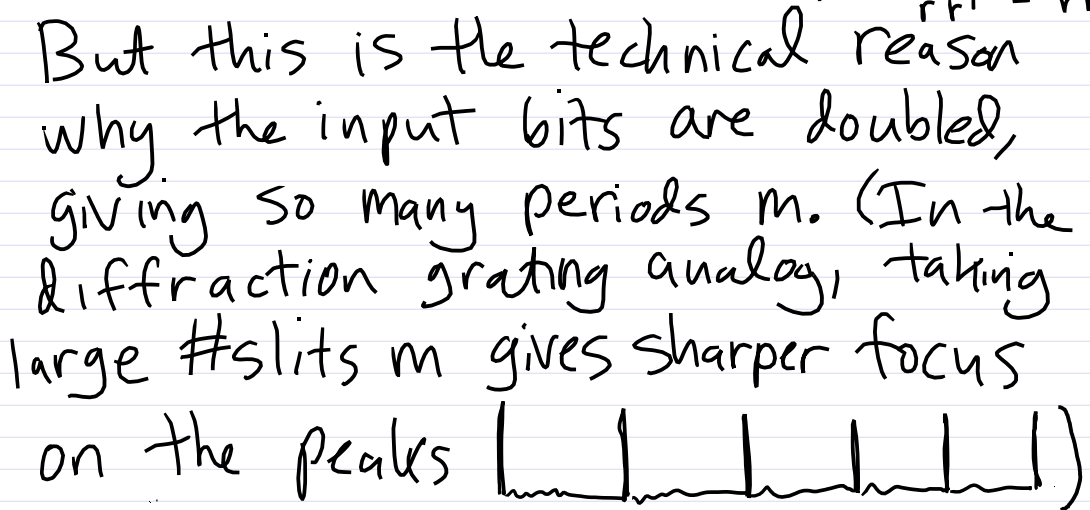 But this is the technical reason
why the input bits are doubled,
giving so many periods m. (In the
diffraction grating analog, taking
large #slits m gives sharper focus
on the peaks )